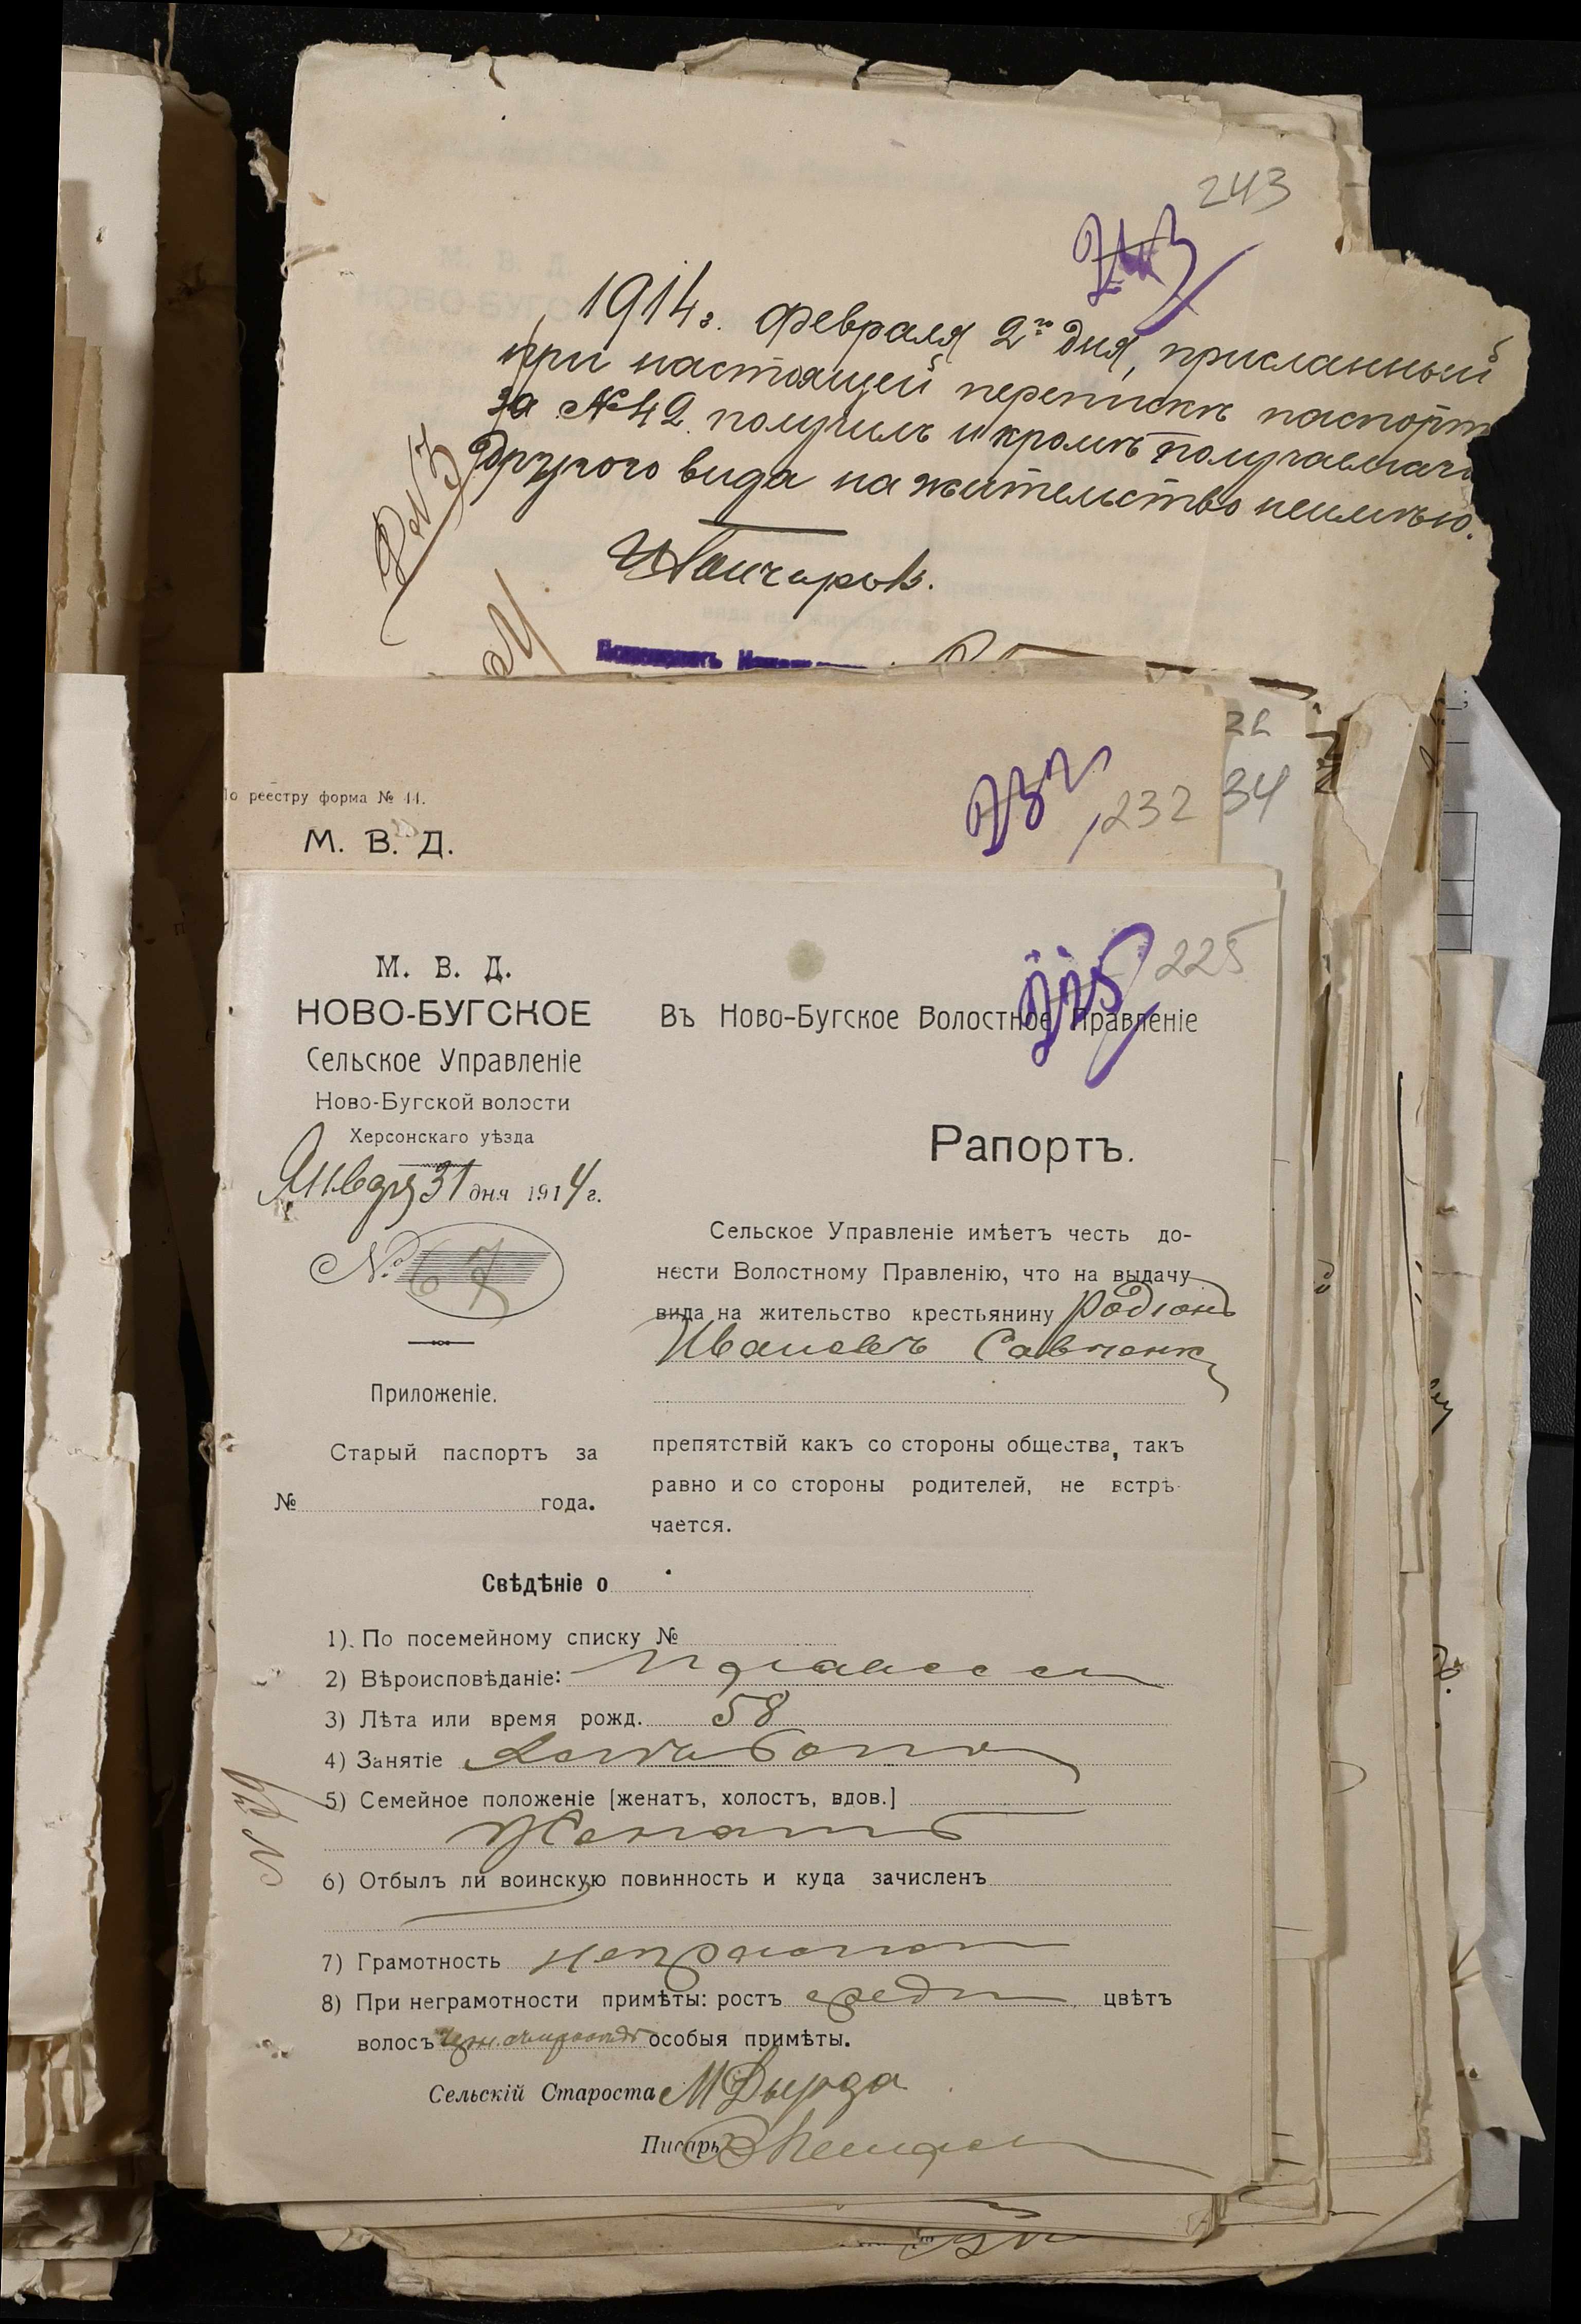 243
243
1914 г. Февраля 2го дня, присланный
при настоящей перепискѣ паспортъ
за № 42 получилъ и кромѣ получаемаго
другого вида на жительство неимѣю.
232
232
34
По реестру форма № 44.
М. В. Д.
225
225
М. В. Д.
НОВО-БУГСКОЕ
Сельское Управленіе
Ново-Бугской волости
Херсонскаго уѣзда
Января 31 дня 1914 г.
№ 67
Приложеніе.
Старый паспортъ за
№ года.
Въ Ново-Бугское Волостное Правленіе
Рапортъ.
Сельское Управленіе имѣетъ честь до-
нести Волостному Правленію, что на выдачу
вида на жительство крестьянину Родіону
Ивановъ Савченку
препятствій какъ со стороны общества, такъ
равно и со стороны родителей, не встрѣ-
чается.
Свѣдѣніе о
1). По посемейному списку №
2) Вѣроисповѣданіе: Православн
3) Лѣта или время рожд. 58
4) Занятіе
5) Семейное положеніе [женатъ, холостъ, вдов.]
Женатъ
6) Отбылъ ли воинскую повинность и куда зачисленъ
7) Грамотность неграмот
8) При неграмотности примѣты: ростъ средн цвѣтъ
волосъ особыя примѣты.
Сельскій Староста М Дырда
Писарь